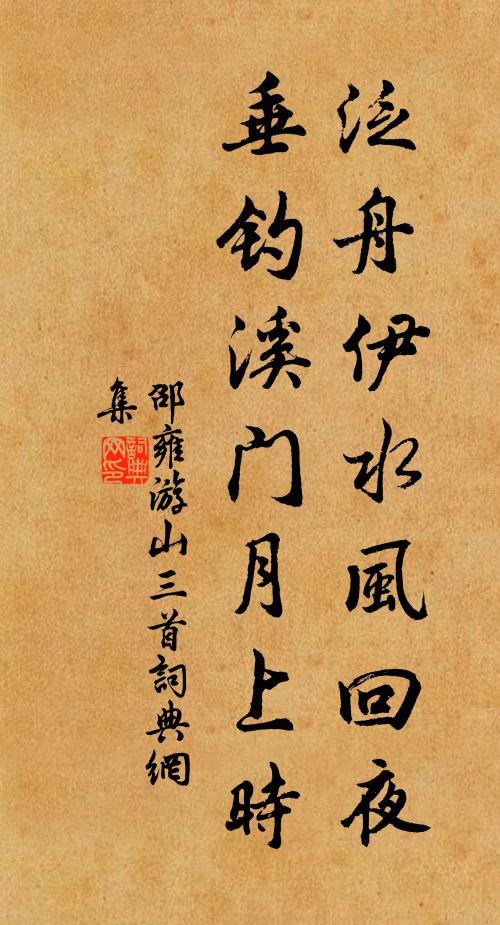 泛舟伊水風回夜
垂钓溪门月上時
邵雍游山三首詞典網
集
詞典网印